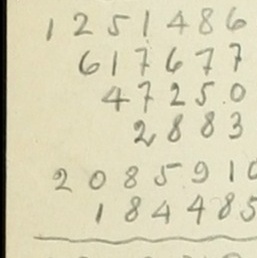 1251486
617677
47250
2883
2085910
184485